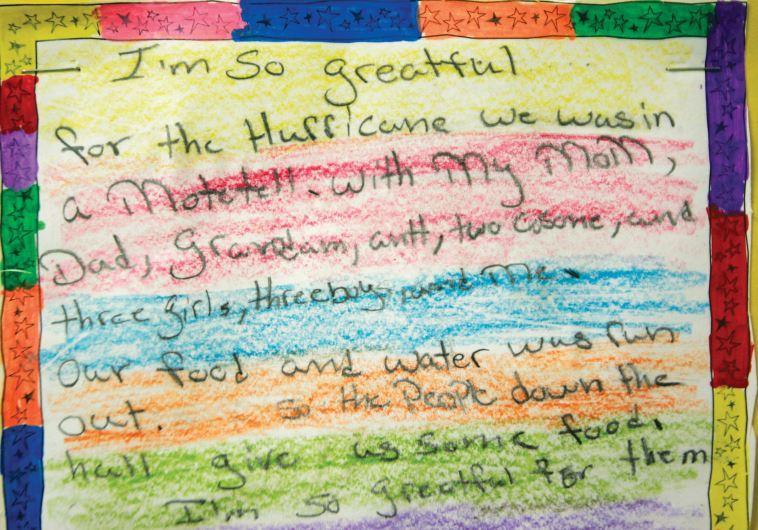 I'm So greatful
for the Hurricane we was in
a Motetell. with My MoM,
Dad, Grandam, antt, two cosone, and
three girls, three boys, and Me.
Our food and water was run
out. so the People down the
hall give us some food.
I'm so greatful for them